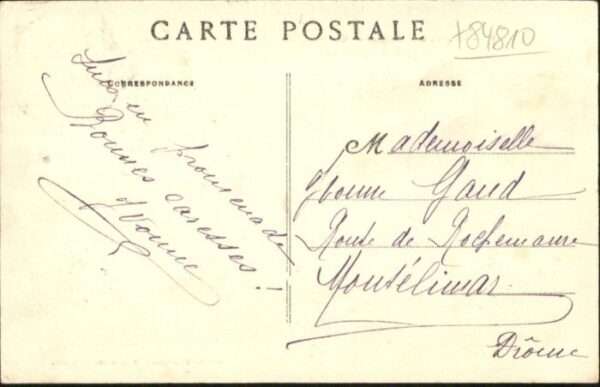 CARTE POSTALE
+84810
CORRESPONDANCE
Suis en promenade
Bonnes caresses !
Yvonne
ADRESSE
Mademoiselle
Yvonne Gaud
Route de Rochemaure
Montélimar
Drôme